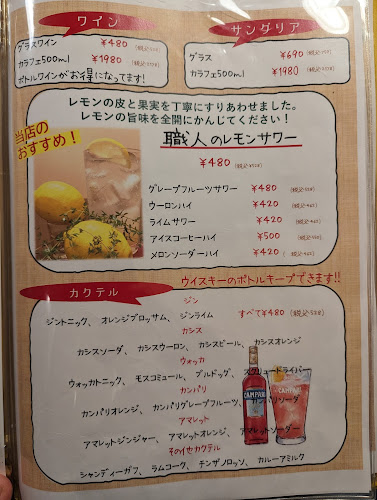 ワイン
グラスワイン ¥480 (税込528)
カラフェ500ml ¥1980
ボトルワインがお得になってます!
サングリア
グラス ¥690
カラフェ500ml ¥1980
当店の
おすすめ!
レモンの皮と果実を丁寧にすりあわせました。
レモンの旨味を全開にかんじてください!
職人のレモンサワー
¥480 (税込528)
グレープフルーツサワー ¥480 (税込528)
ウーロンハイ ¥420 (税込462)
ライムサワー ¥420 (税込462)
アイスコーヒーハイ ¥500 (税込550)
メロンソーダーハイ ¥420 (税込462)
ウイスキーのボトルキープできます!!
カクテル
ジン
ジントニック、 オレンジブロッサム、 ジンライム すべて¥480 (税込528)
カシス
カシスソーダ、 カシスウーロン、 カシスビール、 カシスオレンジ
ウォッカ
ウォッカトニック、 モスコミュール、 ブルドッグ、 スクリュードライバー
カンパリ
カンパリオレンジ、 カンパリグレープフルーツ、 カンパリソーダ
アマレット
アマレットジンジャー、 アマレットオレンジ、 アマレットソーダー
その他カクテル
シャンディーガフ、 ラムコーク、 チンザノロッソ、 カルーアミルク
CAMPARI